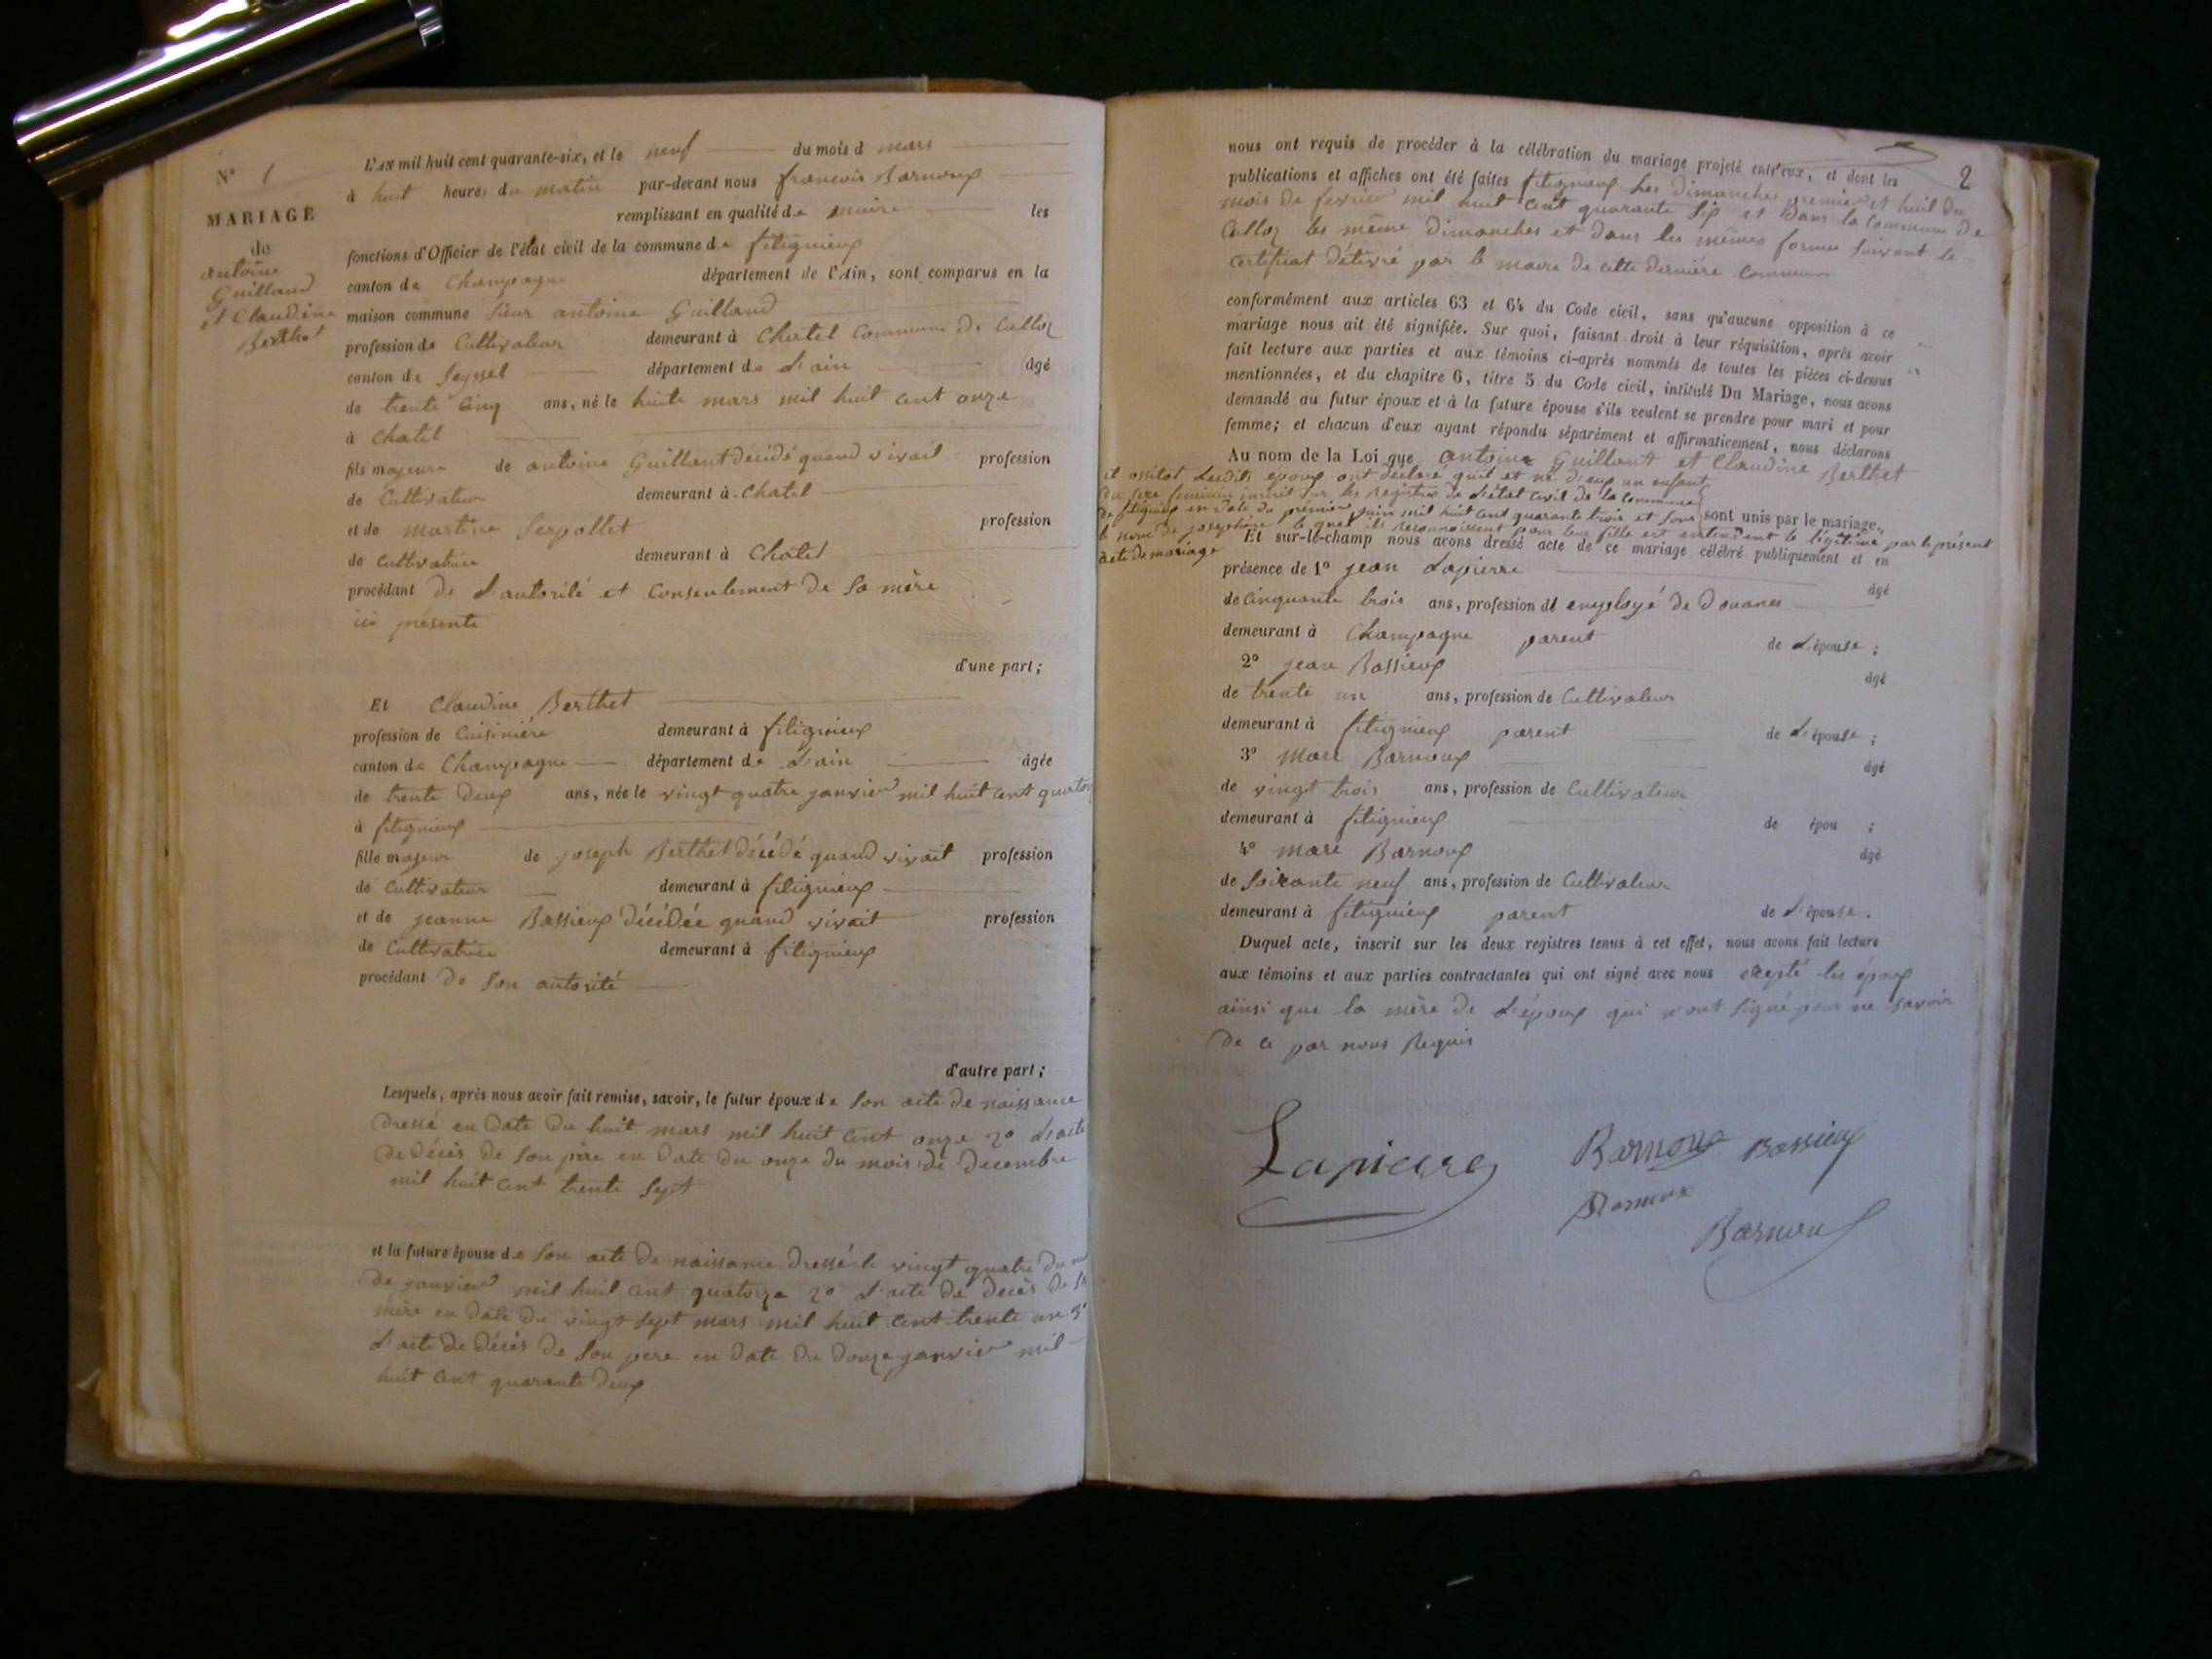 N° 1
MARIAGE
de
antoine
Guilland
et Claudine
Berthet
L'AN mil huit cent quarante-six, et le neuf du mois d mars
à huit heures du matin par-devant nous francois Barnoux
remplissant en qualité de maire les
fonctions d'Officier de l'état civil de la commune de fitignieux
canton de Champagne département de l'Ain, sont comparus en la
maison commune sieur antoine Guilland
profession de Cultivateur demeurant à Chatel Commune de Culloz
canton de Seyssel département de L'ain âgé
de trente cinq ans, né le huite mars mil huit cent onze
à Chatel
fils majeure de antoine Guillant décédé quand vivait profession
de Cultivateur demeurant à Chatel
et de martine Serpollet profession
de cultivatrice demeurant à Chatel
procédant de L'autorité et consentement de sa mère
ici présente
d'une part;
Et Claudine Berthet
profession de Cuisinière demeurant à fitignieux
canton de Champagne département de L'ain âgée
de trente deux ans, née le vingt quatre janvier mil huit cent quator
à fitignieux
fille majeur de joseph Berthet décédé quand vivait profession
de Cultivateur demeurant à fitignieux
et de jeanne Bassieux décédée quand vivait profession
de Cultivatrice demeurant à fitignieux
procédant de son autorité
d'autre part;
Lesquels, après nous avoir fait remise, savoir, le futur époux de son acte de naissance
dressé en date du huit mars mil huit cent onze 2° L'acte
de décès de son père en date du onze du mois de decembre
mil huit cent trente sept
et la future épouse de son acte de naissance dressé le vingt quatre du
de janvier mil huit cent quatorze 2° L'acte de décès de sa
mère en date du vingt sept mars mil huit cent trente un 3°
L'acte de décès de son pere en date du douze janvier mil
huit cent quarante deux
2
nous ont requis de procéder à la célébration du mariage projeté entr'eux, et dont les
publications et affiches ont été faites fitignieux Les dimanche premier et huit du
mois de fevrier mil huit cent quarante six et dans la commune de
Culloz les même dimanches et dans les mêmes formes suivant le
certificat délivré par le maire de cette dernière commune
conformément aux articles 63 et 64 du Code civil, sans qu'aucune opposition à ce
mariage nous ait été signifiée. Sur quoi, faisant droit à leur réquisition, après avoir
fait lecture aux parties et aux témoins ci-après nommés de toutes les pièces ci-dessus
mentionnées, et du chapitre 6, titre 5 du Code civil, intitulé Du Mariage, nous avons
demandé au futur époux et à la future épouse s'ils veulent se prendre pour mari et pour
femme; et chacun d'eux ayant répondu séparément et affirmativement, nous déclarons
Au nom de la Loi que antoine Guillant et Claudine Berthet
et ossitot Lesdits époux ont déclaré quil et né d'eux un enfant
du sexe féminin inscrit sur les registres de l'état civil de la commune
de fitignieux en date du premier juin mil huit cent quarante trois et sous sont unis par le mariage,
le nom de josephine le quel ils reconnaissent pour leur fille est entendent le légitimé par le présent
acte de mariage
Et sur-le-champ nous avons dressé acte de ce mariage célébré publiquement et en
présence de 1° jean Lapierre âgé
de cinquante trois ans, profession de employé de Douanes
demeurant à Champagne parent de L'épouse;
2° jean Bassieux âgé
de trente un ans, profession de Cultivateur
demeurant à fitignieux parent de L'épouse;
3° Marc Barnoux âgé
de vingt trois ans, profession de Cultivateur
demeurant à fitignieux de épou ;
4° Marc Barnoux âgé
de soixante neuf ans, profession de Cultivateur
demeurant à fitignieux parent de L'épouse.
Duquel acte, inscrit sur les deux registres tenus à cet effet, nous avons fait lecture
aux témoins et aux parties contractantes qui ont signé avec nous exepté les époux
ainsi que la mère de L'époux qui n'ont signé pour ne savoir
de ce par nous Requis
Lapierre Barnoux Bassieux
Barnoux
Barnoux